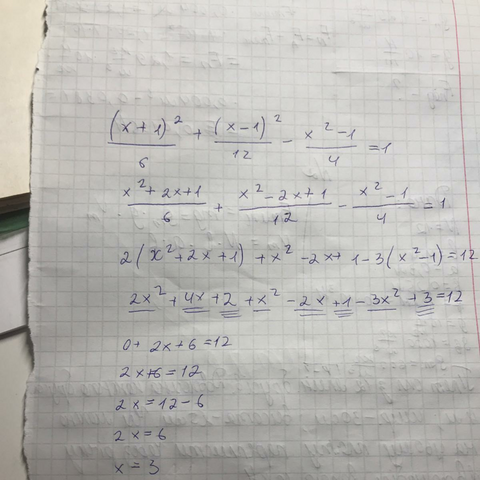 (x+1)²/6 + (x-1)²/12 - x²-1/4 = 1
x²+2x+1/6 + x²-2x+1/12 - x²-1/4 = 1
2(x²+2x+1)+x²-2x+1-3(x²-1)=12
2x²+4x+2+x²-2x+1-3x²+3=12
0+2x+6=12
2x+6=12
2x=12-6
2x=6
x=3